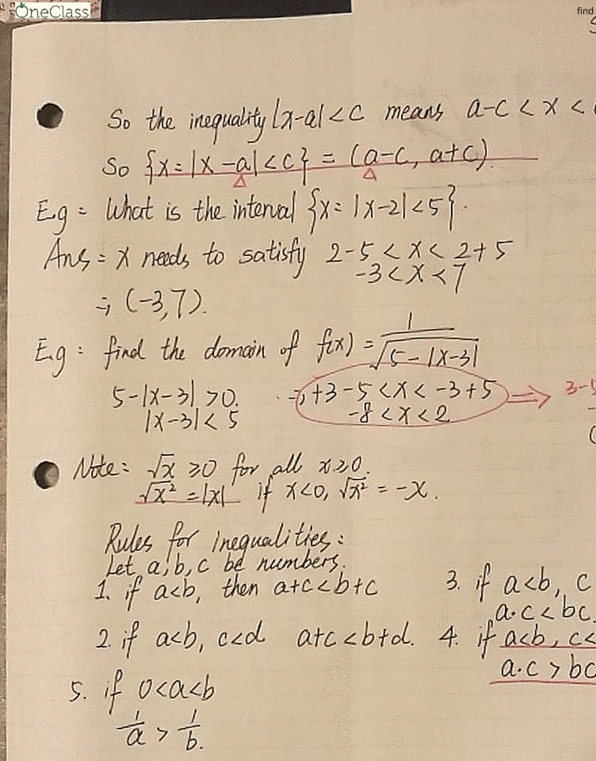 OneClass
find
So the inequality |x-a|<c means a-c < x <
So {x=|x-a|<c} = (a-c, a+c).
E.g = What is the interval {x= |x-2|<5}.
Ans = x needs to satisfy 2-5 < x < 2+5
-3 < x < 7
=, (-3,7).
E.g : find the domain of f(x) = 1/√5-|x-3|
5-|x-3| >0. =, +3-5 < x < -3+5 => 3-5
|x-3| < 5 -8 < x < 2
Note: √x ≥0 for all x≥0.
√x² =|x| if x<0, √x² = -x.
Rules for inequalities:
Let a,b,c be numbers.
1. if a<b, then a+c<b+c
2. if a<b, c<d a+c<b+d.
3. if a<b, c
a·c<bc.
4. if a<b, c<
a·c > bc
5. if 0<a<b
1/a > 1/b.